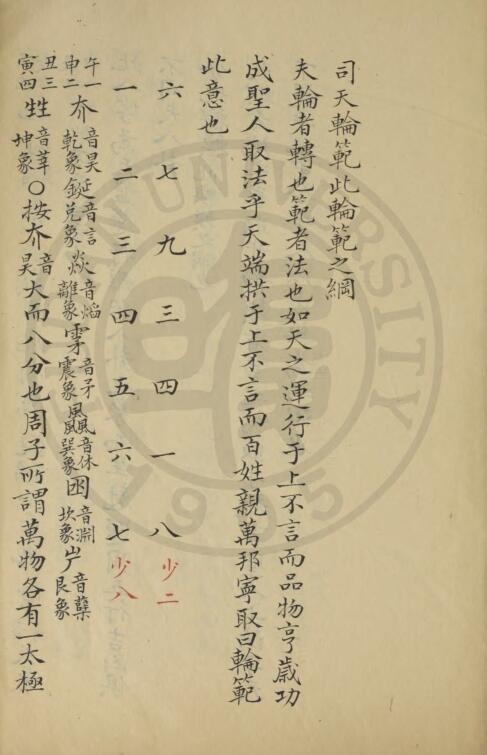 司天輪範此輪範之綱
夫輪者轉也範者法也如天之運行于上不言而品物亨歲功
成聖人取法乎天端拱于上不言而百姓親萬邦寧取曰輪範
此意也
六 七 九 三 四 一 八 少二
一 二 三 四 五 六 七 少八
午一申二 夰 音昊乾象 鋋 音言兌象 焱 音焰離象 雺 音矛震象 飍 音休巽象 囦 音淵坎象 屵 音櫱艮象
丑三寅四 甡 音莘坤象 ○按夰 音昊 大而八分也周子所謂萬物各有一太極
UNIVERSITY
1925